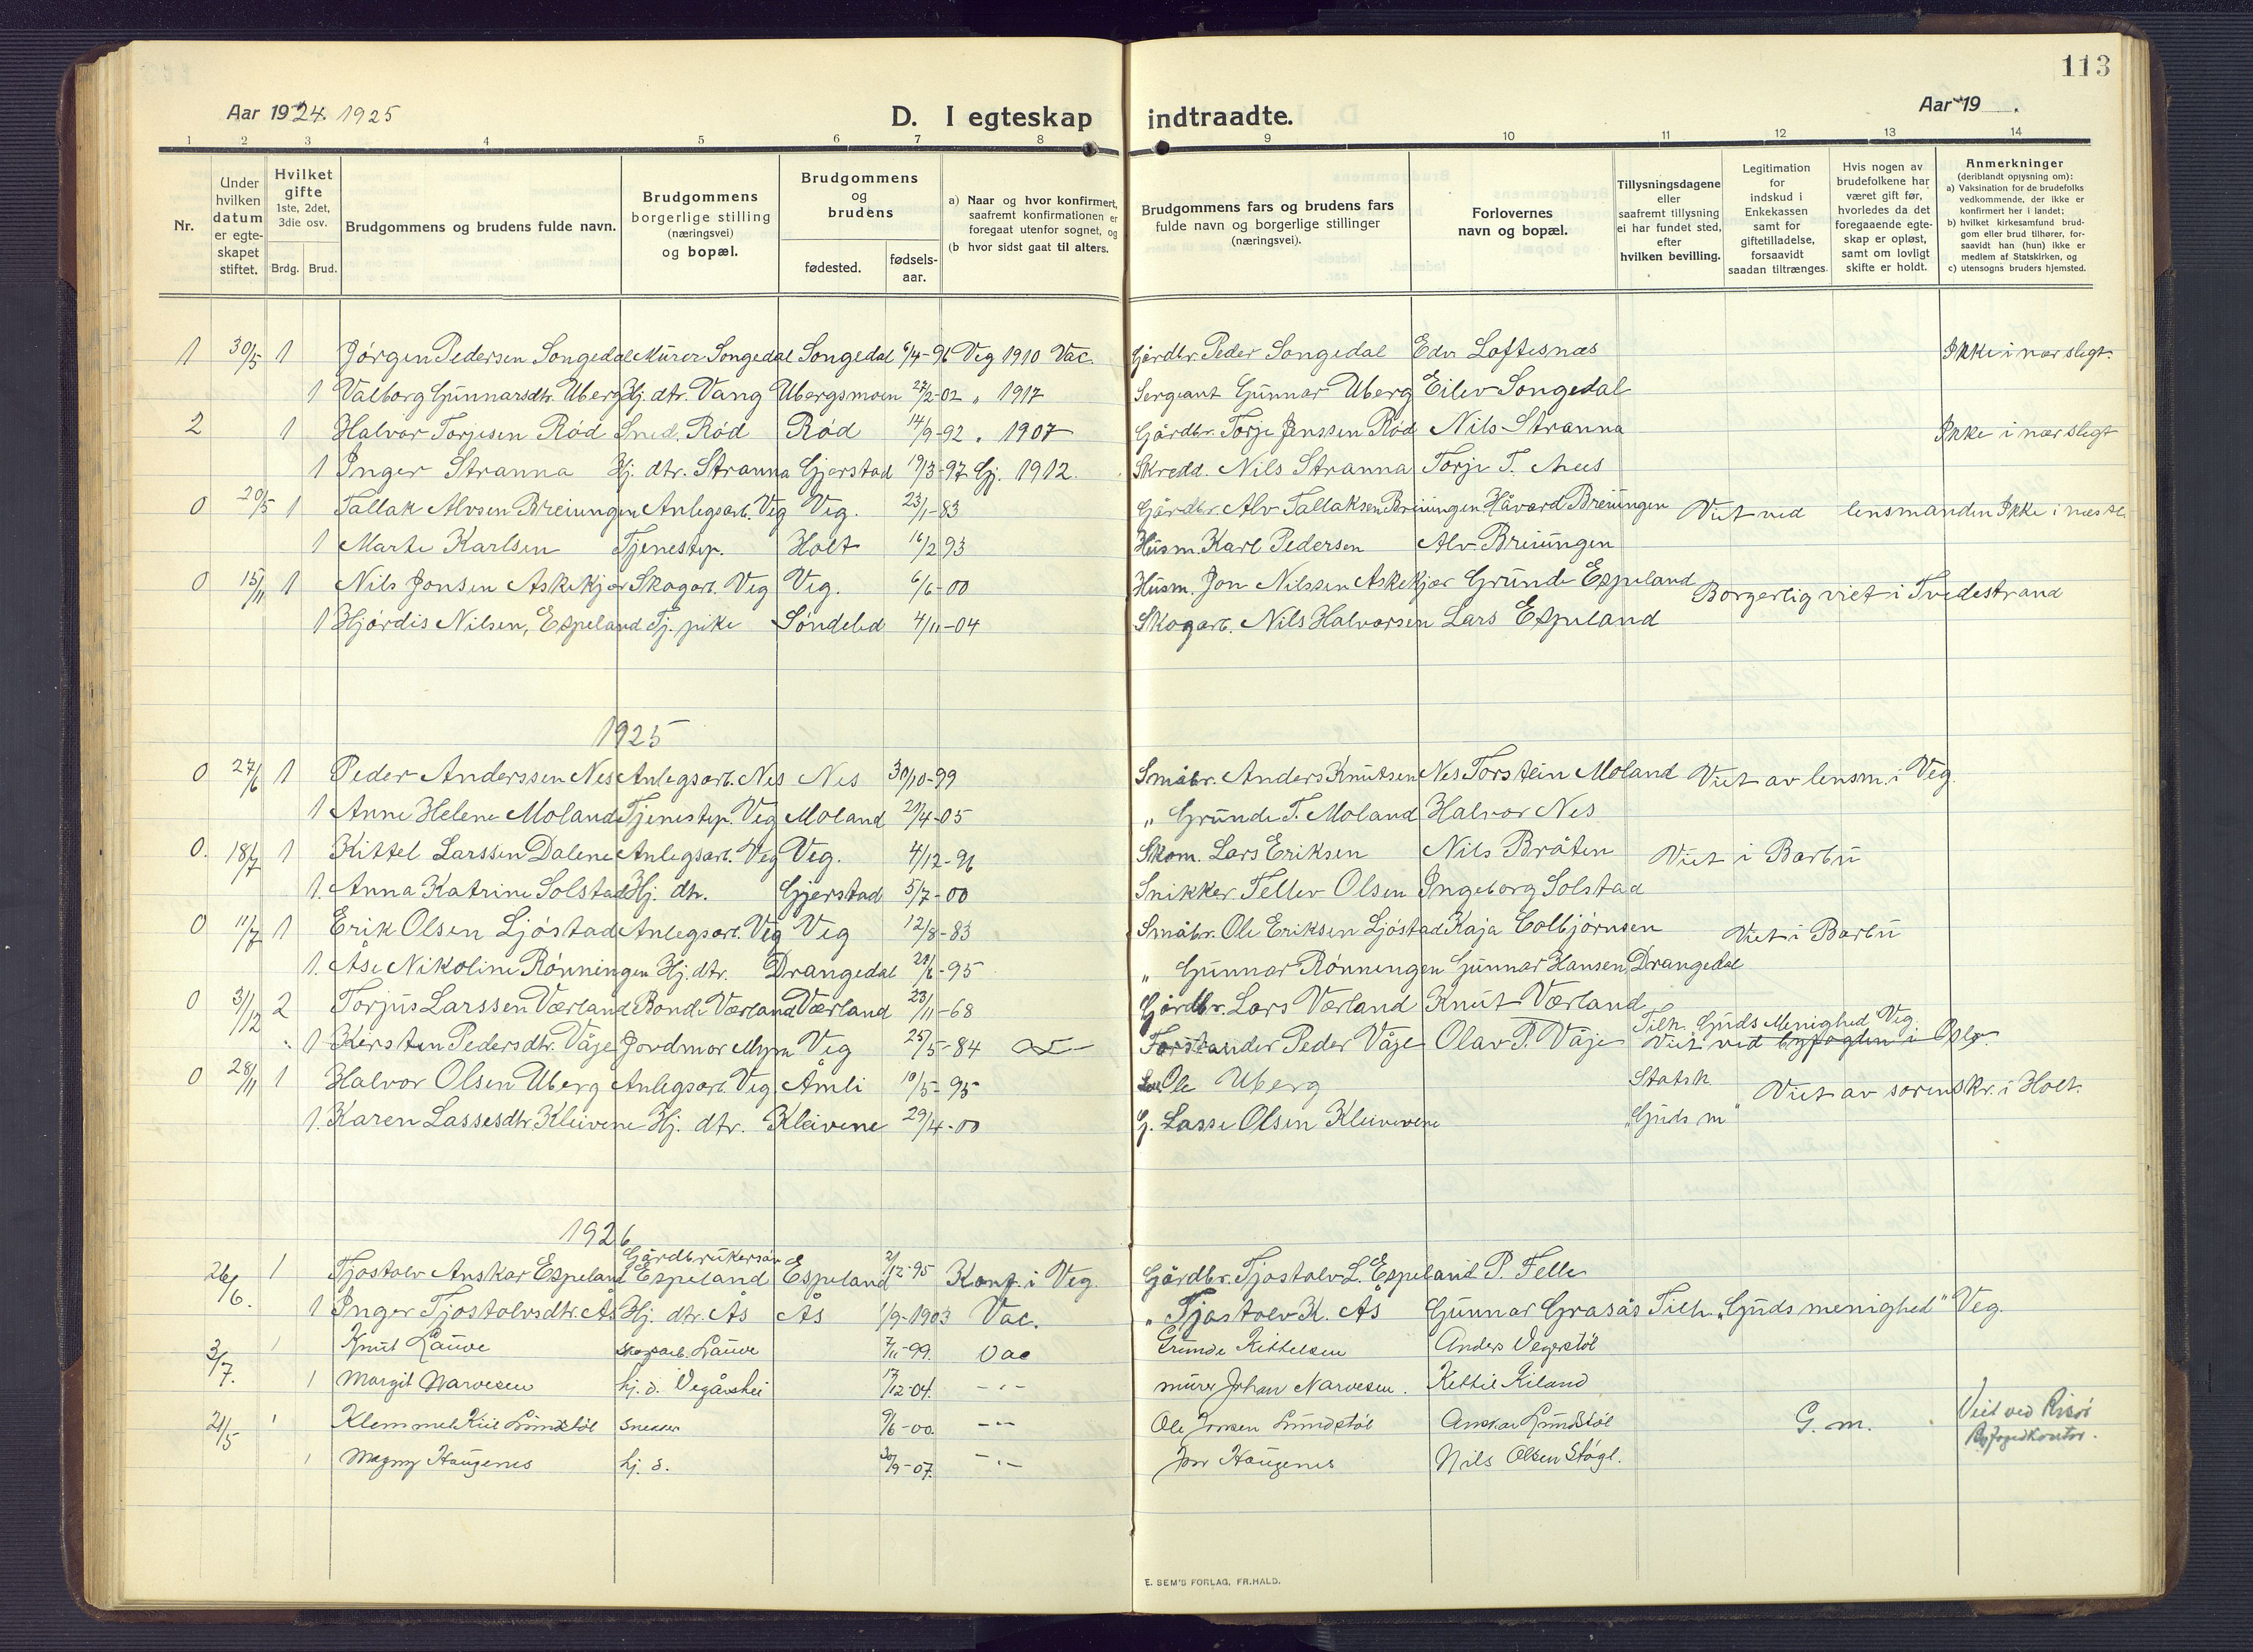 113
Aar 1924. 1925
D. I egteskap indtraadte.
Aar 19 .
1 2 3 4 5 6 7 8 9 10 11 12 13 14
Nr.
Under hvilken datum er egteskapet stiftet.
Hvilket gifte 1ste, 2det, 3die osv.
Brdg. Brud.
Brudgommens og brudens fulde navn.
Brudgommens borgerlige stilling (næringsvei) og bopæl.
Brudgommens og brudens
fødested.
fødsels-aar.
a) Naar og hvor konfirmert, saafremt konfirmationen er foregaat utenfor sognet, og
(b hvor sidst gaat til alters.
Brudgommens fars og brudens fars fulde navn og borgerlige stillinger (næringsvei).
Forlovernes navn og bopæl.
Tillysningsdagene eller saafremt tillysning ei har fundet sted, efter hvilken bevilling.
Legitimation for indskud i Enkekassen samt for giftetilladelse, forsaavidt saadan tiltrænges.
Hvis nogen av brudefolkene har været gift før, hvorledes da det foregaaende egteskap er opløst, samt om lovligt skifte er holdt.
Anmerkninger (deriblandt oplysning om):
a) Vaksination for de brudefolks vedkommende, der ikke er konfirmert her i landet;
b) hvilket kirkesamfund brudgom eller brud tilhører, forsaavidt han (hun) ikke er medlem af Statskirken, og
c) utensogns bruders hjemsted.
1 30/5 1 Jørgen Pedersen Songedal Murer Songedal Songedal 6/4-96 Veg 1910 Vac. Gårdbr. Peder Songedal Edv Loftesnæs Ikke i nær slegt.
1 Valborg Gunnarsdtr. Uberg Hj. dtr. Vang Ubergsmoen 27/2-02 " 1917 Sergeant Gunnar Uberg Eilev Songedal
2 1 Halvor Torjesen Rød Sned. Rød Rød 14/9-92 " 1907 Gårdbr. Torje Jenssen Rød Nils Stranna Ikke i nær slegt
1 Inger Stranna Hj. dtr. Stranna Gjerstad 19/3-97 Gj. 1912. Skredd. Nils Stranna Torje T.
0 20/5 1 Tallak Alvsen Breiungen Anlegsarb. Veg Veg. 23/1-83 Gårdbr. Alv Tallaksen Breiungen Håvard Breiungen Viet ved lensmanden Ikke i
1 Marte Karlsen Tjenestep. Holt 16/2 93 Husm. Karl Pedersen Alv Breiungen
0 15/11 1 Nils Jonsen Askekjær Skogarb. Veg Veg. 6/6-00 Husm. Jon Nilssen Askekjær Grunde Espeland Borgerlig viet i Tvedestrand
1 Hjørdis Nilsen, Espeland Tj. pike Søndeled 4/11-04 Skogarb. Nils Halvorsen Lars Espeland
1925
0 27/6 1 Peder Anderssen Nes Anlegsarb. Nes Nes 30/10-99 Småbr. Anders Knutsen Nes Torstein Moland Viet av lensm. i Veg.
1 Anne Helene Moland Tjenestep. Veg Moland 21/4-05 " Grunde T. Moland Halvor Nes
0. 18/7 1 Kittel Larssen Dalene Anlegsarb. Veg Veg. 4/12-96 Skom. Lars Eriksen Nils Bråten Viet i Barbu
1. Anna Katrine Solstad Hj. dtr. Gjerstad 5/7-00 Snikker Tellev Olsen Ingeborg Solstad
0 11/7 1 Erik Olsen Ljøstad Anlegsarb. Veg Veg 12/8-83 Småbr. Ole Eriksen Ljøstad Kaja Colbjørnsen Viet i Barbu
1. Åse Nikoline Rønningen Hj. dtr. Drangedal 20/6-95 " Gunnar Rønningen Gunnar Hansen, Drangedal
0 3/12 2 Torjus Larssen Værland Bonde Værland Værland 23/11-68 Gårdbr. Lars Værland Knut Værland
1 Kirsten Pedersdtr. Våje Jordmor Myra Veg 25/5-84 Forstander Peder Våje Olav P. Våje Tilh. Guds Menighed Veg. Viet ved byfogden i Oslo
0 28/11 1 Halvor Olsen Uberg Anlegsarb. Veg. Åmli 10/5-95 Ole Uberg Statsk. Viet av sorenskr. i Holt.
1. Karen Lassesdtr. Kleivene Hj. dtr. Kleivene 29/4-00 G. Lasse Olsen Kleivene "Guds m"
1926
26/6. 1 Tjostolv Anskar Espeland Gårdbrukersøn Espeland Espeland 2/12-95 Konf. i Veg. Gårdbr. Tjostolv L. Espeland P. Felle
1 Inger Tjostolvsdtr. Ås Hj. dtr. Ås Ås 1/9-1903 Vac. " Tjostolv K. Ås Gunnar Grasås Tilh. "Guds menighed" Veg.
3/7. 1 Knut Lauve Skogsarb. Lauve 7/11-99. Vac Grunde Kittelsen Anders Vegerstøl
1 Margit Narvesen hj. d. Vegårshei 17/12-04. -"- murer Johan Narvesen. Kittil Kiland
21/5 1 Klemmet Kiil Lundstøl Snekker 9/6-00 -"- Ole Jonsen Lundstøl Anskar Lundstøl G. m. Viet ved Risør Byfogedkontor.
1 Magny Haugenes hj. d. 30/9-07. -"- Jon Haugenes Nils Olsen Støgl.
E. SEM'S FORLAG, FR.HALD.